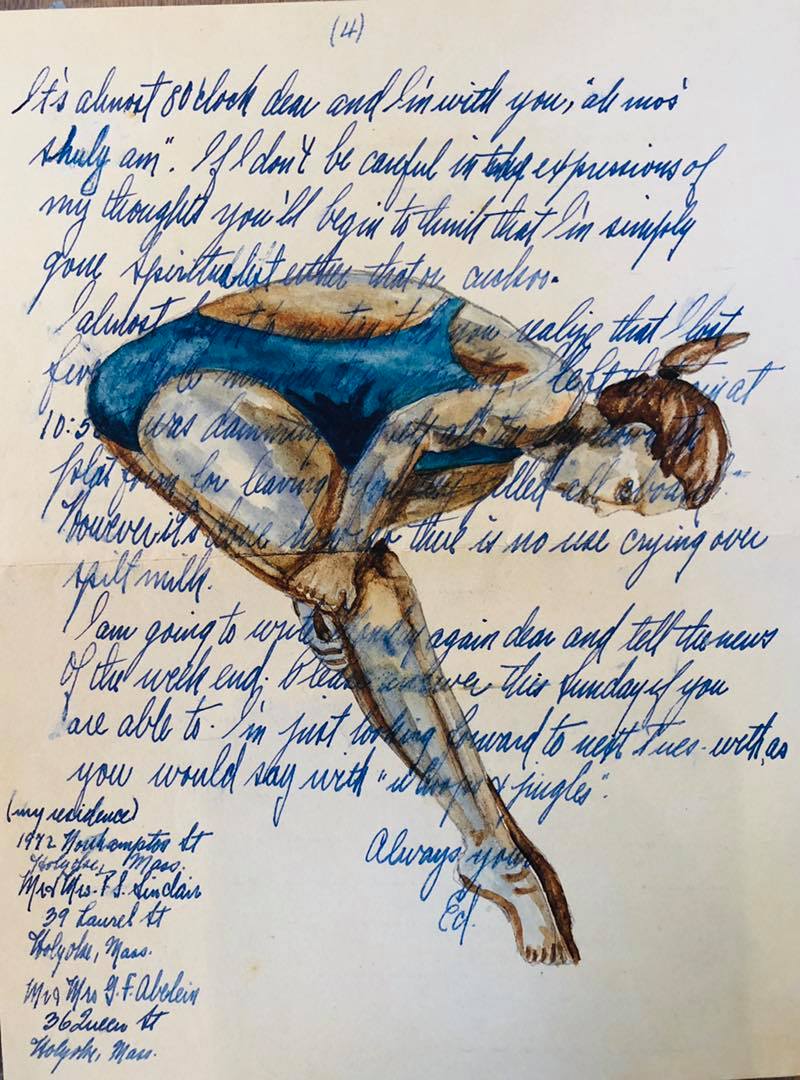 (4)
It's almost 8 O'clock dear and I'm with you, "ah mos'
shuly am". If I don't be careful in the expressions of
my thoughts you'll begin to think that I'm simply
gone spiritualist either that or cuckoo.
I almost you realize that I lost
five whole I left the at
10:5 was damning all the the
platform for leaving filled all aboard
However it's done now so there is no use crying over
spilt milk.
I am going to write Sunday again dear and tell the news
of the week end. Please answer this Sunday if you
are able to. I'm just looking forward to next Tues. with, as
you would say with "whoops & jingles".
Always yours
Ed.
(my residence)
1972 Northampton St
Holyoke, Mass.
Mr & Mrs. F. S. Sinclair
39 Laurel St
Holyoke, Mass.
Mr & Mrs G. F. Abelein
36 Queen St
Holyoke, Mass.